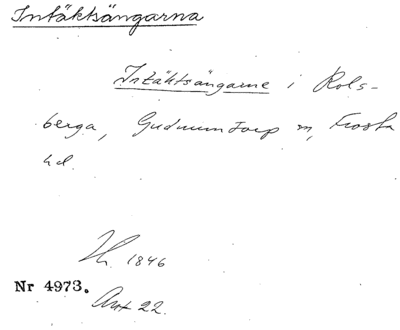 Intäktsängarna
Intäktsängarne i Rols-
berga, Gudmuntorp sn, Frosta
hd.
1846
Nr 4973.
Akt 22.